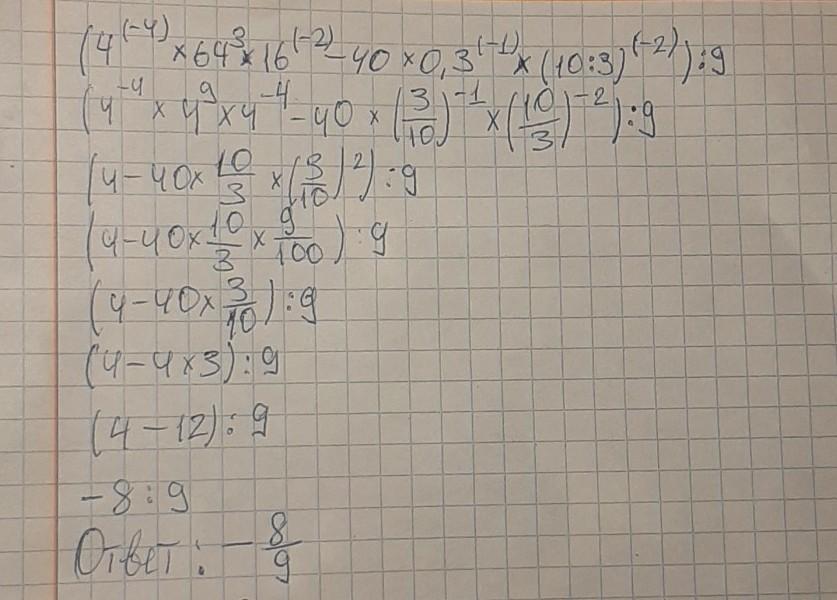 (4^(-4) × 64^3 × 16^(-2) - 40 × 0,3^(-1) × (10:3)^(-2)):9
(4^-4 × 4^9 × 4^-4 - 40 × (3/10)^-1 × (10/3)^-2):9
(4 - 40 × 10/3 × (3/10)^2):9
(4 - 40 × 10/3 × 9/100):9
(4 - 40 × 3/10):9
(4 - 4 × 3):9
(4 - 12):9
-8:9
Ответ: - 8/9